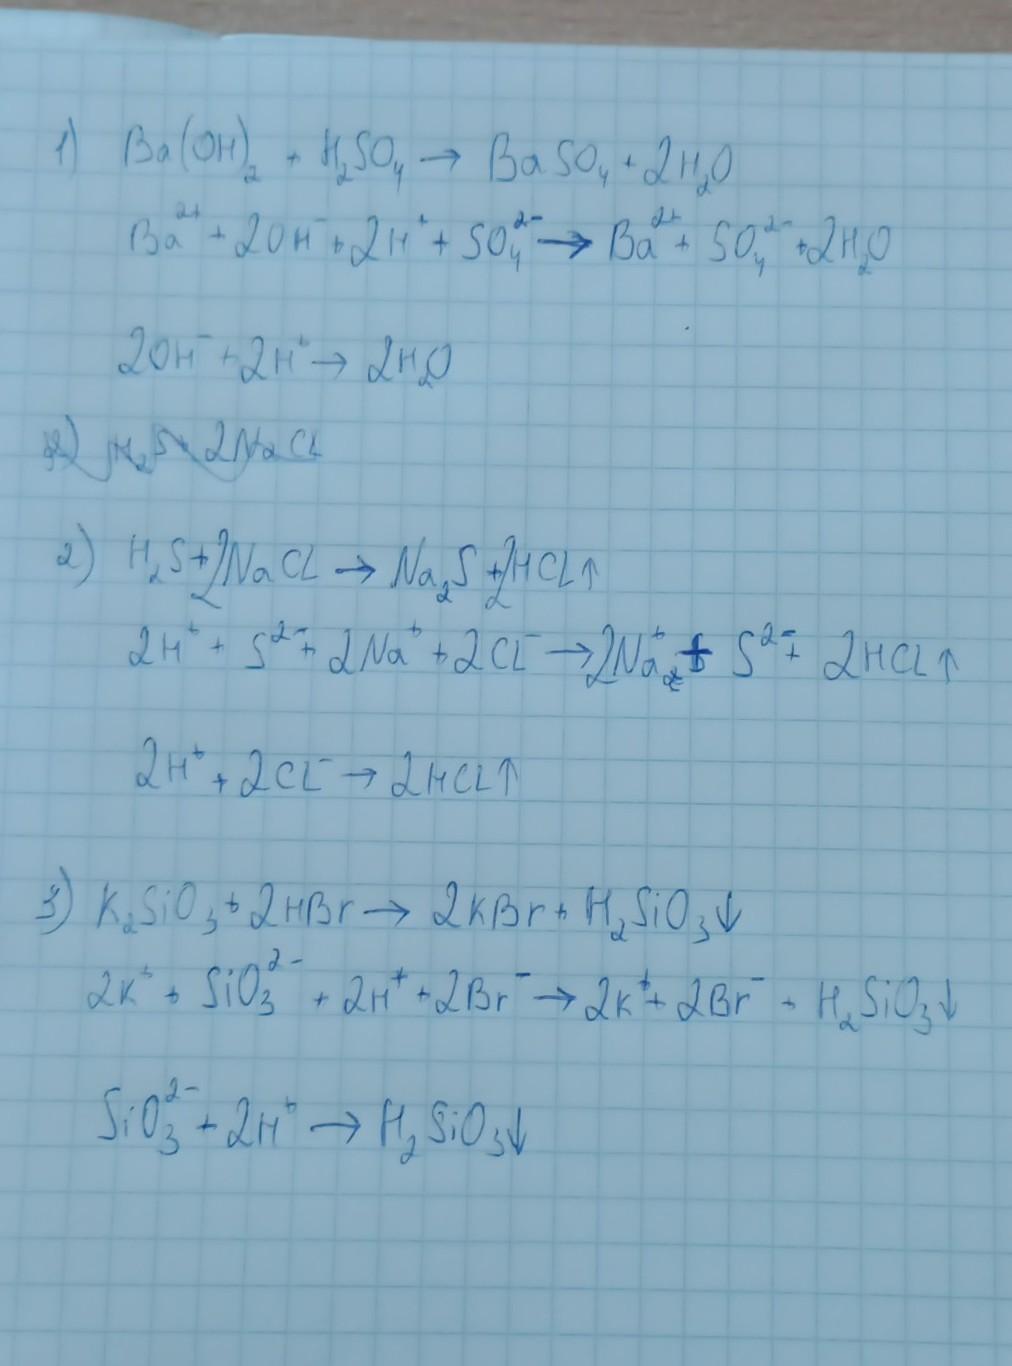 1) Ba(OH)₂ + H₂SO₄ → BaSO₄ + 2H₂O
Ba²⁺ + 2OH⁻ + 2H⁺ + SO₄²⁻ → Ba²⁺ + SO₄²⁻ + 2H₂O
2OH⁻ + 2H⁺ → 2H₂O
2) H₂S + 2NaCl
2) H₂S + 2NaCl → Na₂S + 2HCl↑
2H⁺ + S²⁻ + 2Na⁺ + 2Cl⁻ → 2Na⁺ + S²⁻ + 2HCl↑
2H⁺ + 2Cl⁻ → 2HCl↑
3) K₂SiO₃ + 2HBr → 2KBr + H₂SiO₃↓
2K⁺ + SiO₃²⁻ + 2H⁺ + 2Br⁻ → 2K⁺ + 2Br⁻ + H₂SiO₃↓
SiO₃²⁻ + 2H⁺ → H₂SiO₃↓